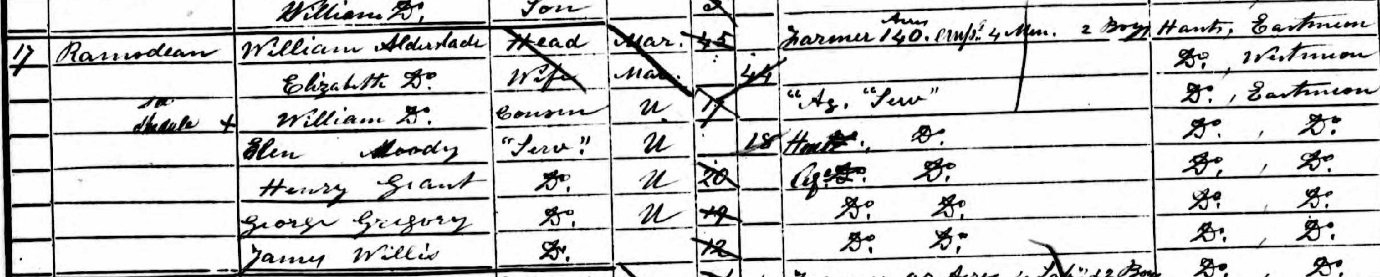 William Do. Son
17 Ramsdean William Alderslade Head Mar. 45 Farmer 140 Acres emp. 4 Men. 2 Boys Hants, Eastmeon
Elizabeth Do. Wife Mar. 44 Do., Westmeon
William Do. Cousin U. 17 "Ag. "Serv" Do., Eastmeon
Elen Moody "Serv." U 18 Do. Do., Do.
Henry Grant Do. U 20 Ag. Do. Do., Do.
George Gregory Do. U 19 Do. Do. Do. Do.
James Willis Do. 12 Do. Do. Do., Do.
Farmer Acres 2 Boys Do. Do.